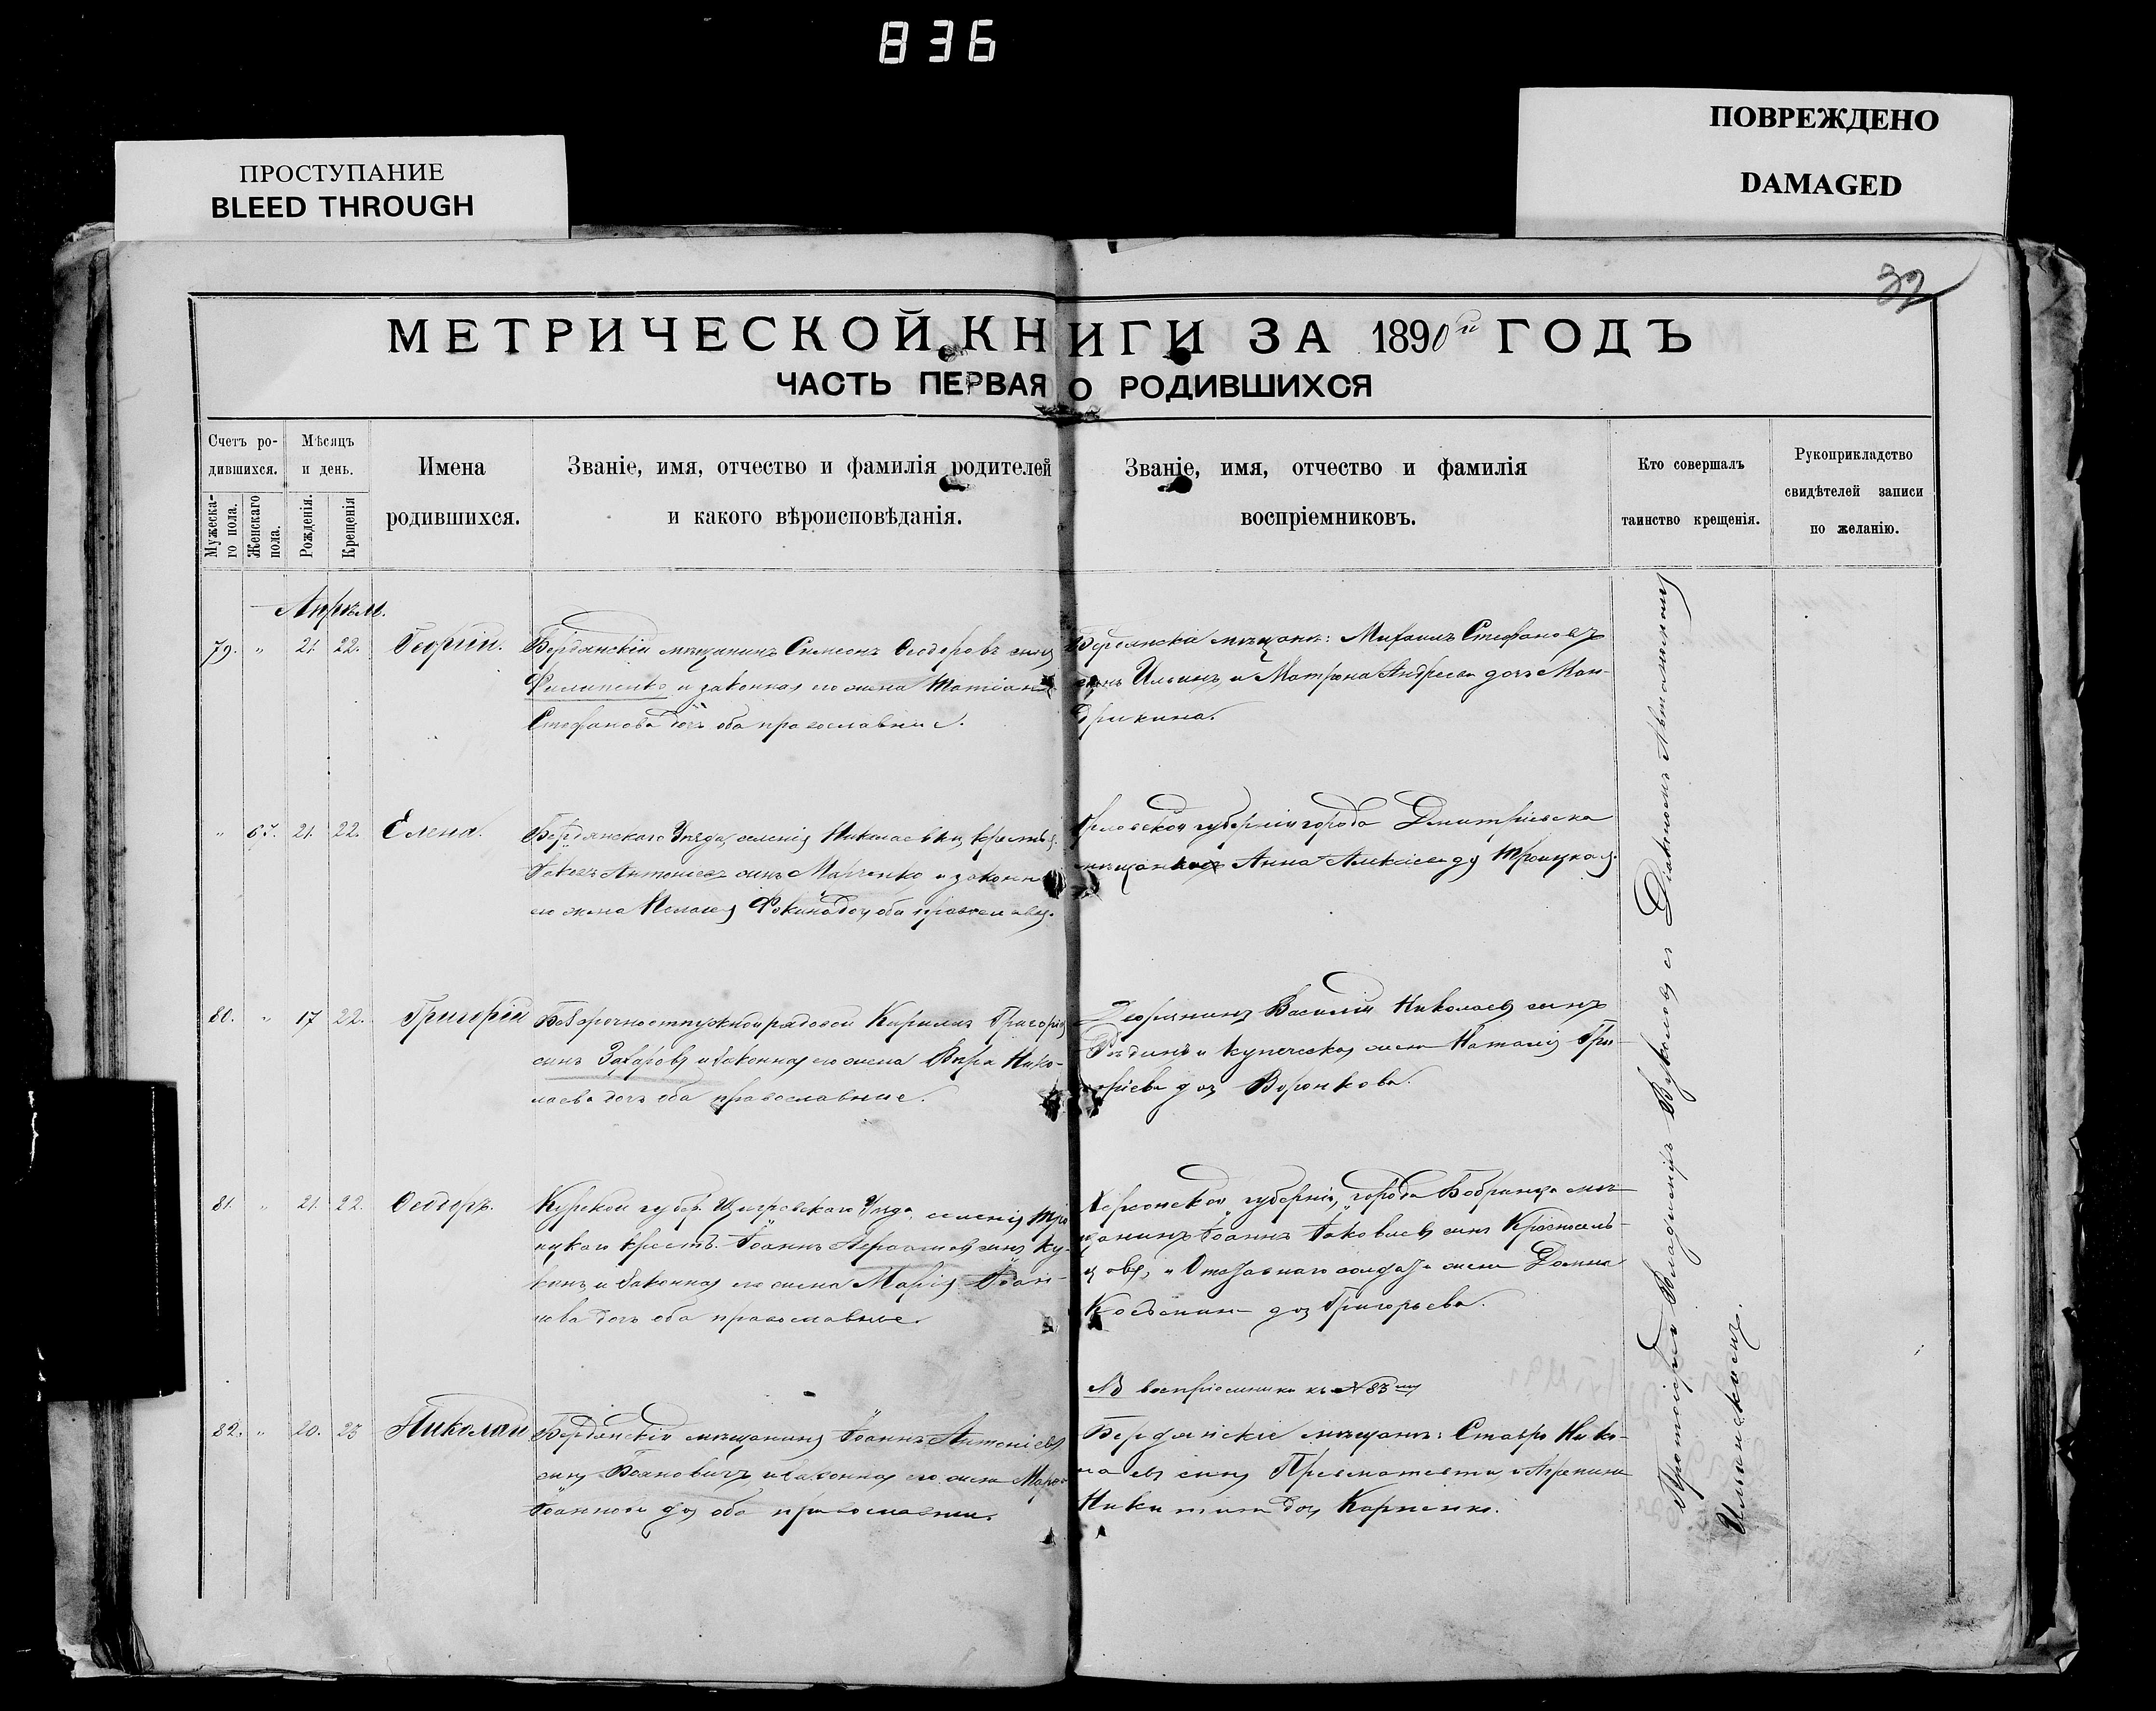 836
ПРОСТУПАНИЕ
BLEED THROUGH
ПОВРЕЖДЕНО
DAMAGED
32
МЕТРИЧЕСКОЙ КНИГИ ЗА 1890й ГОДЪ
ЧАСТЬ ПЕРВАЯ О РОДИВШИХСЯ
Счетъ ро-
дившихся.
Мужеска-
го пола.
Женскаго
пола.
Мѣсяцъ
и день.
Рожденія.
Крещенія
Имена
родившихся.
Званіе, имя, отчество и фамилія родителей
и какого вѣроисповѣданія.
Званіе, имя, отчество и фамилія
воспріемниковъ.
Кто совершалъ
таинство крещенія.
Рукоприкладство
свидѣтелей записи
по желанію.
Апрѣль.
79. " 21. 22. Георгій.
Бердянскій мѣщанинъ Симеонъ Ѳеодоровъ сынъ
Филипенко и законная его жена Татіана
Стефанова дочь оба православные.
Бердянскіе мѣщане: Михаилъ Стефановъ
сынъ Ильинъ и Матрона Андреева дочь Ман-
дрикина.
" 65. 21. 22. Елена.
Бердянскаго Уѣзда, селенія Николаевки, крестьян.
Іаковъ Антоніевъ сынъ Марченко и законная
его жена Пелагея Фокина дочь оба православн.
Орловской губерніи города Дмитріевска
мѣщанка Анна Алексіева дч Троицкая.
80. " 17 22. Григорій
Безсрочноотпускной рядовой Кирилъ Григоріев
сынъ Захаровъ и законная его жена Вѣра Нико-
лаева дочь оба православные.
Дворянинъ Василій Николаевъ сынъ
и купеческая жена Наталія Гри-
горіева дочь Воронкова.
81. " 21. 22. Ѳеодоръ.
Курской губер. Щигровскаго Уѣзда, селенія Тро
ицкаго крестьян. Іоаннъ сынъ Ку-
кинъ и законная его жена Марія Іоан-
нова дочь оба православные.
Херсонской губерніи, города Бобринца мѣ-
щанинъ Іоаннъ Іаковлевъ сынъ
и Отставнаго солдата жена Домна
дочь Григорьева.
воспріемники къ № 83му
82. " 20. 23 Николай
Бердянскій мѣщанинъ Іоаннъ Антоніевъ
сынъ Вояновичъ, и законная его жена
Іоаннова дч оба православные.
Бердянскіе мѣщане: Ставро Нико-
лаевъ сынъ и Агрипина
Никитина дочь Карпенко.
Протоіерей Владиміръ Вуколовъ съ Діакономъ
Ильинскимъ.